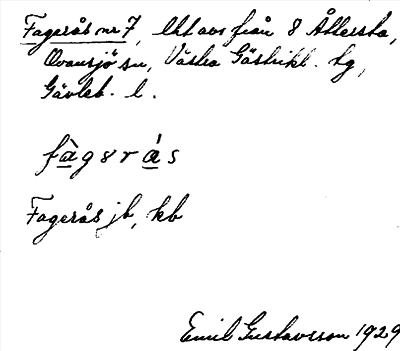 Fagerås nr 7, lht avs från 8 Åttersta,
Ovansjö sn, Västra Gästrikl. tg,
Gävleb. l.
fàg8rás
Fagerås jb, kb
Emil Gustavsson 1929